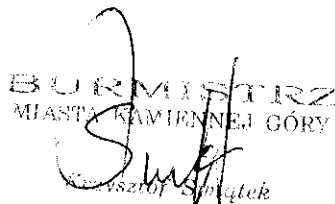 BURMISTRZ
MIASTA KAMIENNEJ GÓRY
Krzysztof Świątek